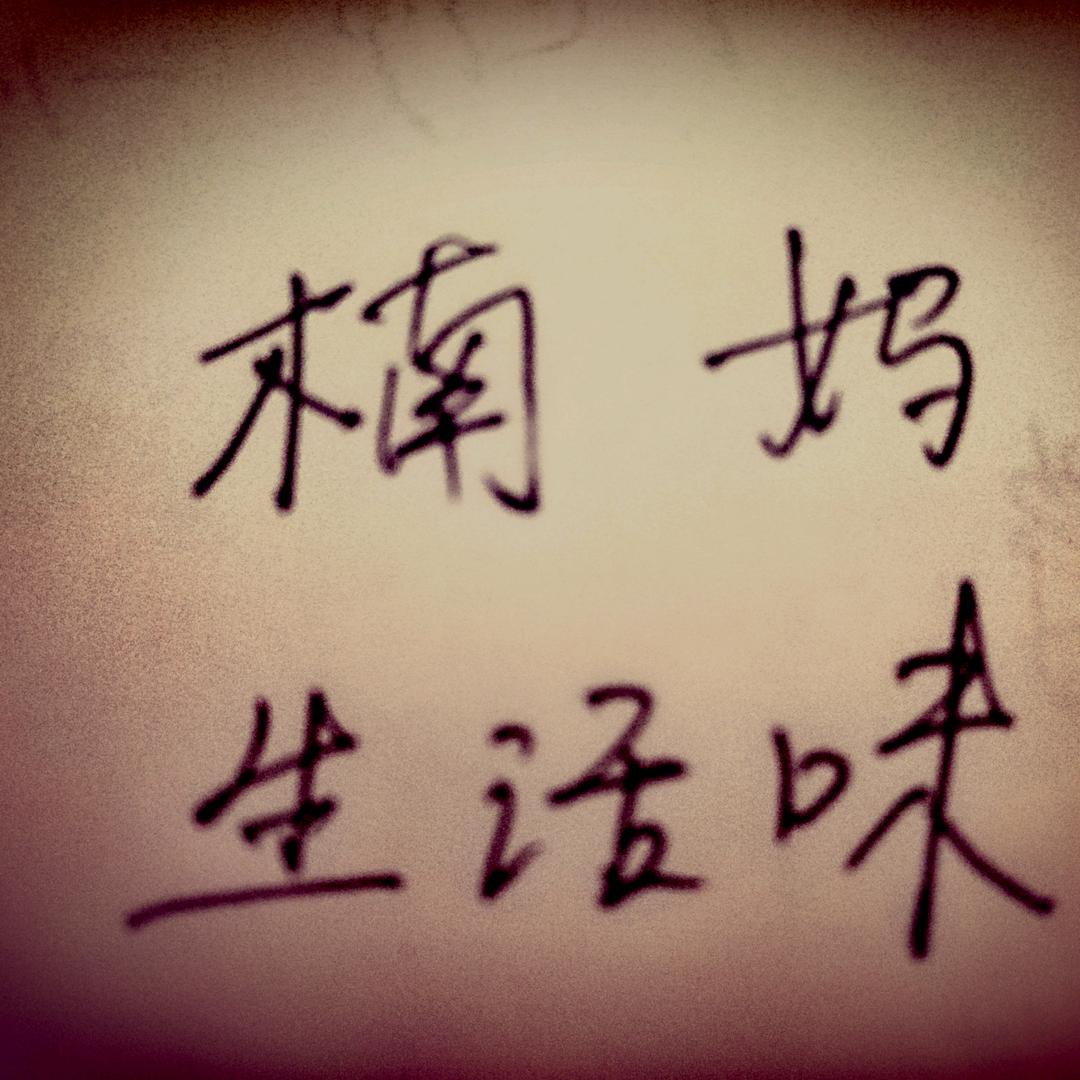 楠妈
生活味